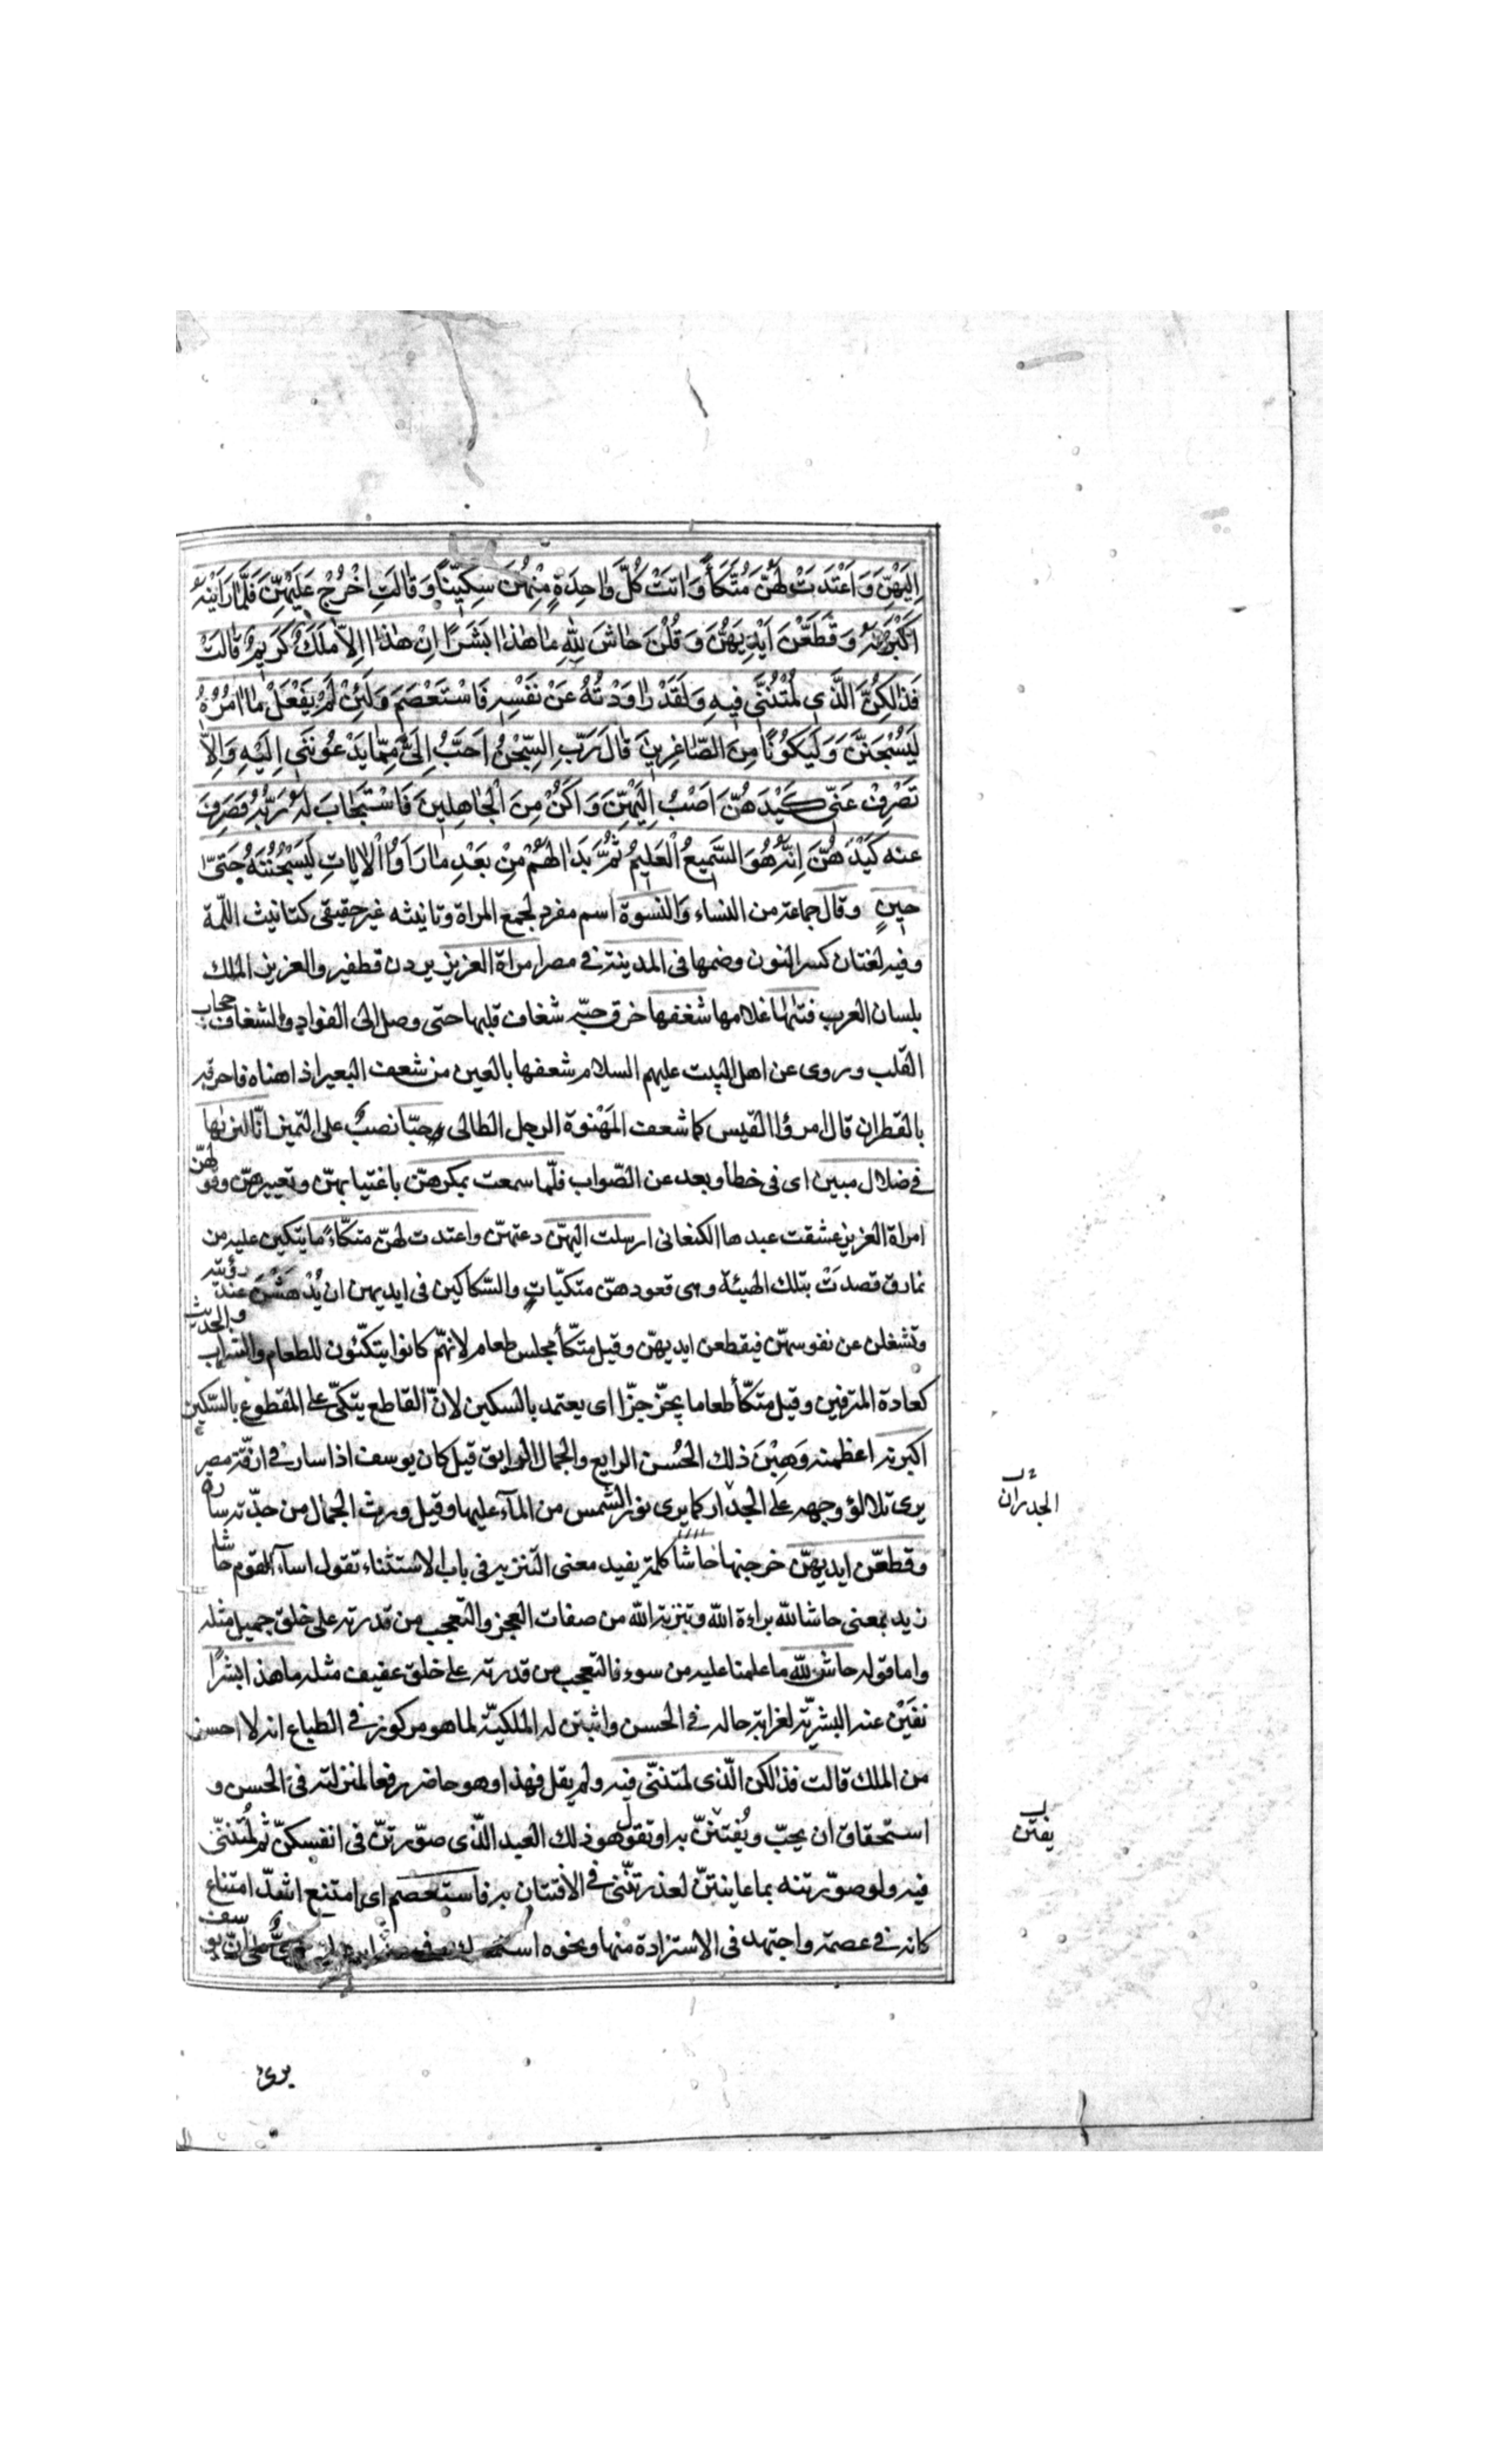 اِلَيْهِنَّ وَاَعْتَدَتْ لَهُنَّ مُتَّكَأً وَاٰتَتْ كُلَّ وٰاحِدَةٍ مِنْهُنَّ سِكّينًا وَقٰالَتِ اخْرُجْ عَلَيْهِنَّ فَلَمّٰا رَاَيْنَهُ
اَكْبَرْنَهُ وَقَطَّعْنَ اَيْدِيَهُنَّ وَقُلْنَ حٰاشَ لِلّٰهِ مٰا هٰذٰا بَشَرًا اِنْ هٰذٰا اِلاّٰ مَلَكٌ كَرِيمٌ قٰالَتْ
فَذٰلِكُنَّ الَّذِي لُمْتُنَّنِي فِيهِ وَلَقَدْ رٰاوَدْتُهُ عَنْ نَفْسِهِ فَاسْتَعْصَمَ وَلَئِنْ لَمْ يَفْعَلْ مٰا اٰمُرُهُ
لَيُسْجَنَنَّ وَلَيَكُونًا مِنَ الصّٰاغِرِينَ قٰالَ رَبِّ السِّجْنُ اَحَبُّ اِلَيَّ مِمّٰا يَدْعُونَنِي اِلَيْهِ وَاِلاّٰ
تَصْرِفْ عَنِّي كَيْدَهُنَّ اَصْبُ اِلَيْهِنَّ وَاَكُنْ مِنَ الْجٰاهِلِينَ فَاسْتَجٰابَ لَهُ رَبُّهُ فَصَرَفَ
عنه كَيْدَهُنَّ اِنَّهُ هُوَ السَّمِيعُ الْعَلِيمُ ثُمَّ بَدٰا لَهُمْ مِنْ بَعْدِ مٰا رَاَوُا الْاٰيٰاتِ لَيَسْجُنُنَّهُ حَتّىٰ
حِينٍ وقال جماعة من النساء والنسوة اسم مفرد لجمع المراة وتانيثه غير حقيقى كتانيث اللمة
وفيه لغتان كسر النون وضمها فى المدينة فى مصر امراة العزيز يردن قطفير والعزيز الملك
بلسان العرب فتٰىها غلامها شغفها خرق حبّه شغاف قلبها حتى وصل الى الفواد والشغاف حجاب
القلب وروى عن اهل البيت عليهم السلام شعفها بالعين من شعف البعير اذا هناه فاحرقه
بالقطران قال امرؤا القيس كما شعف المَهْنوة الرجل الطالى وحبّا نصبٌ على التميز انّا لنرٰىها
فى ضلال مبين اى فى خطأ وبعد عن الصّواب فلّما سمعت بمكرهنّ باغتيابهنّ وتعييرهنّ وقو لهنّ
امراة العزيز عشقت عبدها الكنعانى ارسلت اليهنّ دعتهنّ واعتدت لهنّ متكّاءً ما يتكين عليه من
نمارق قصدَتْ بتلك الهيئة وهى قعودهنّ متكيّاتٍ والسّكاكين فى ايديهن ان يُدْهَشْنَ عند رؤيته
وتشغلن عن نفوسهنّ فيقطعن ايديهنّ وقيل متكّأ مجلس طعام لانهّم كانوا يتكّئون للطعام والشراب والحديث
كعادة المترفين وقيل متكّأ طعاما يحزّ حزّا اى يعتمد بالسكين لانّ القاطع يتكّئ على المقطوع بالسّكين
اكبرنه اعظمنه وَهِبْنَ ذلك الحُسن الرايع والجمال الرايق قيل كان يوسف اذا سار فى ازقّة مصر
يرى تلالؤ وجهه على الجدار كما يرى نور الشمس من المآء عليها وقيل ورث الجمال من جدّته سارة
وقطعّن ايديهنّ خرجنها حاشا كلمة يفيد معنى التنزيه فى باب الاستثناء تقول اسآء القوم حاشا
زيد بمعنى حاشا لله براءة الله وتنزيه الله من صفات العجز والتعجب من قدرته على خلق جميل مثله
واما قوله حاش لله ما علمنا عليه من سوء فالتعجب من قدرته على خلق عفيف مثله ما هذا بشرًا
نفَيْن عنه البشريّة لغرابة حاله فى الحسن واثبتن له الملكيّة لما هو مركوز فى الطباع انه لا احسن
من الملك قالت فذلكن الّذى لمتننّى فيه ولم يقل فهذا وهو حاضر رفعا لمنزلته فى الحسن و
استحقاق ان يحبّ ويُفتننّ به او تقول هو ذلك العبد الّذى صوّرتنّ فى انفسكنّ ثم لمُتننّى
فيه ولو صوّرتنه بما عاينتنّ لعذرتنّنى فى الافتتان به فاستعصم اى امتنع اشدّ امتناع
كانه فى عصمة واجتهد فى الاستزادة منها ونحوه على انّ يوسف
الجدران
يفتن
برئ